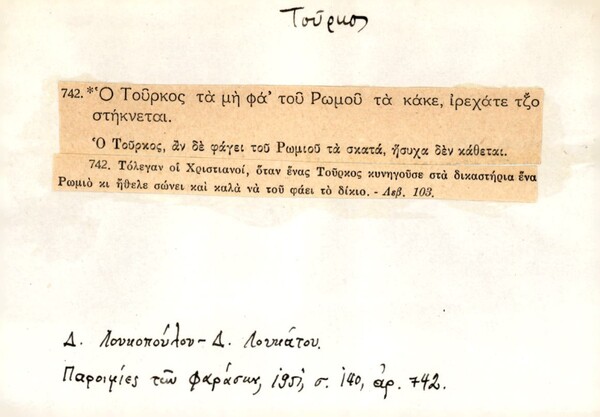 Τοῦρκος
742. *Ὁ Τοῦρκος τὰ μὴ φά' τοῦ Ρωμοῦ τὰ κάκε, ἰρεχάτε τζ̆ο
στήκνεται.
Ὁ Τοῦρκος, ἂν δὲ φάγει τοῦ Ρωμιοῦ τὰ σκατά, ἥσυχα δὲν κάθεται.
742. Τόλεγαν οἱ Χριστιανοί, ὅταν ἕνας Τοῦρκος κυνηγοῦσε στὰ δικαστήρια ἕνα
Ρωμιὸ κι ἤθελε σώνει καὶ καλὰ νὰ τοῦ φάει τὸ δίκιο. - Λεβ. 103.
Δ. Λουκοπούλου - Δ. Λουκάτου.
Παροιμίες τῶν Φαράσων, 1951, σ. 140, ἀρ. 742.